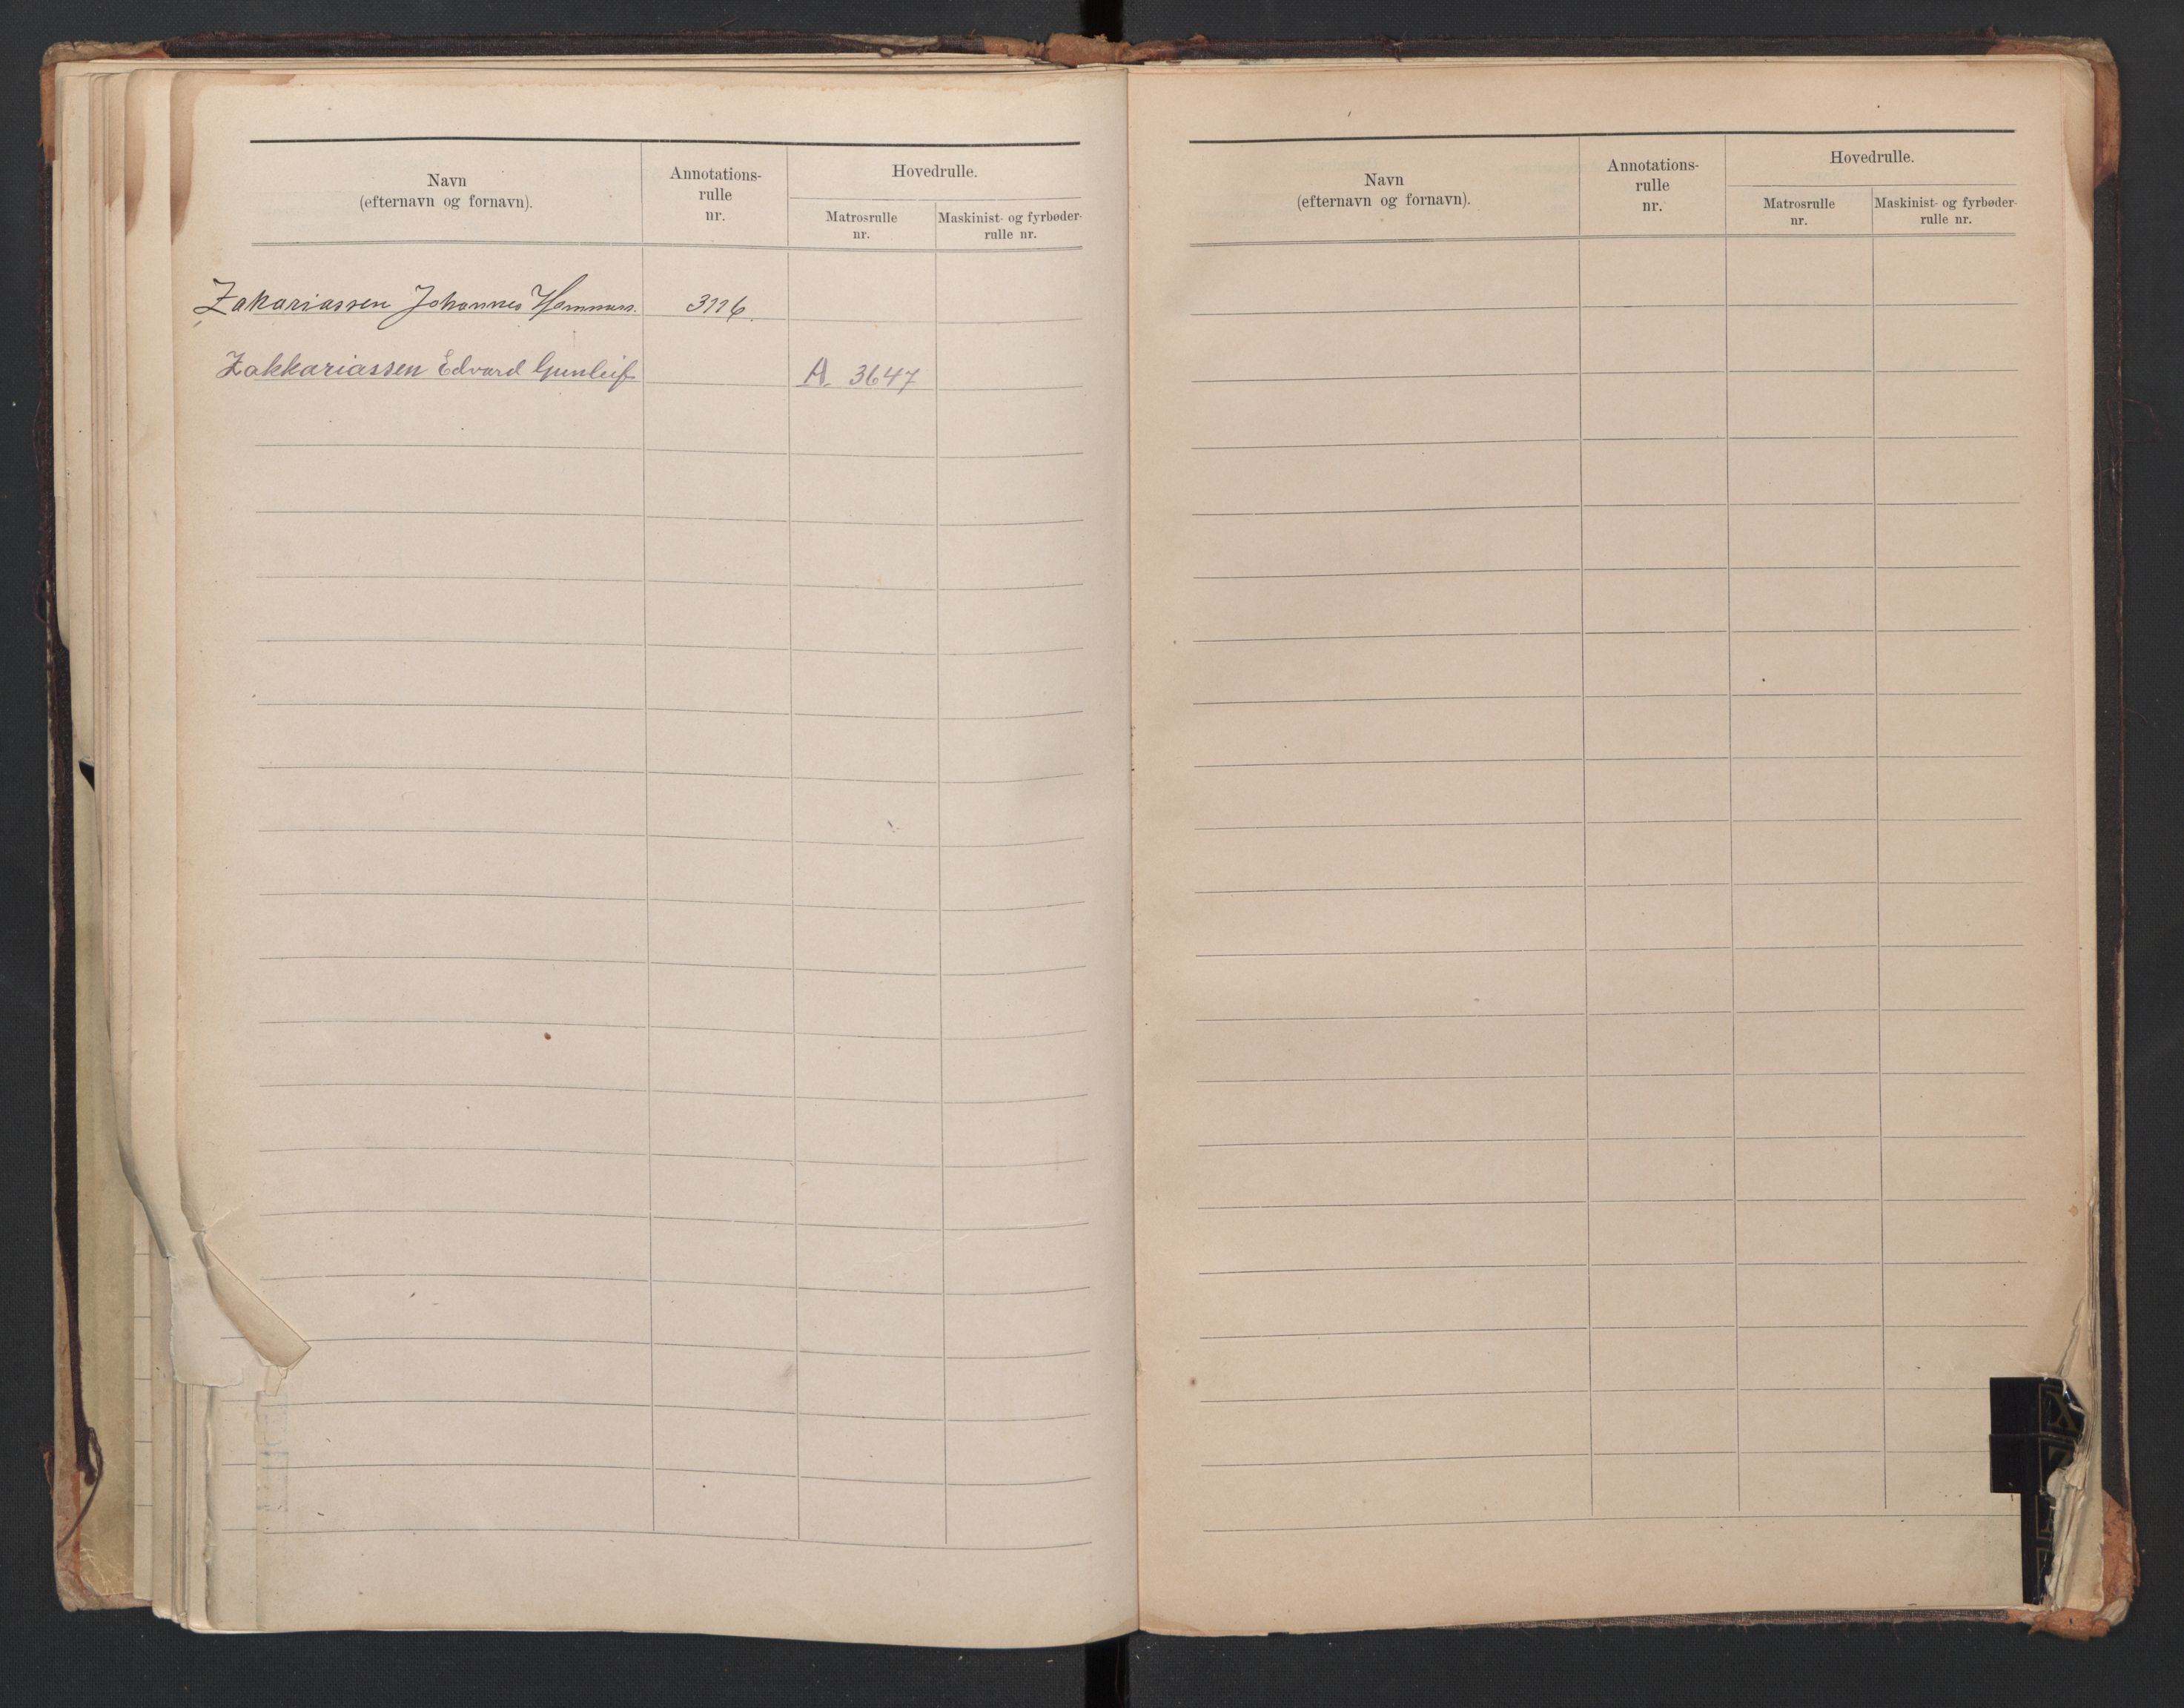 Navn
(efternavn og fornavn).
Annotations-
rulle
nr.
Hovedrulle.
Matrosrulle
nr.
Maskinist- og fyrbøder-
rulle nr.
Zakariassen Johannes 3116
Zakkariassen Edvard Gunleif A 3647
Navn
(efternavn og fornavn).
Annotations-
rulle
nr.
Hovedrulle.
Matrosrulle
nr.
Maskinist- og fyrbøder-
rulle nr.